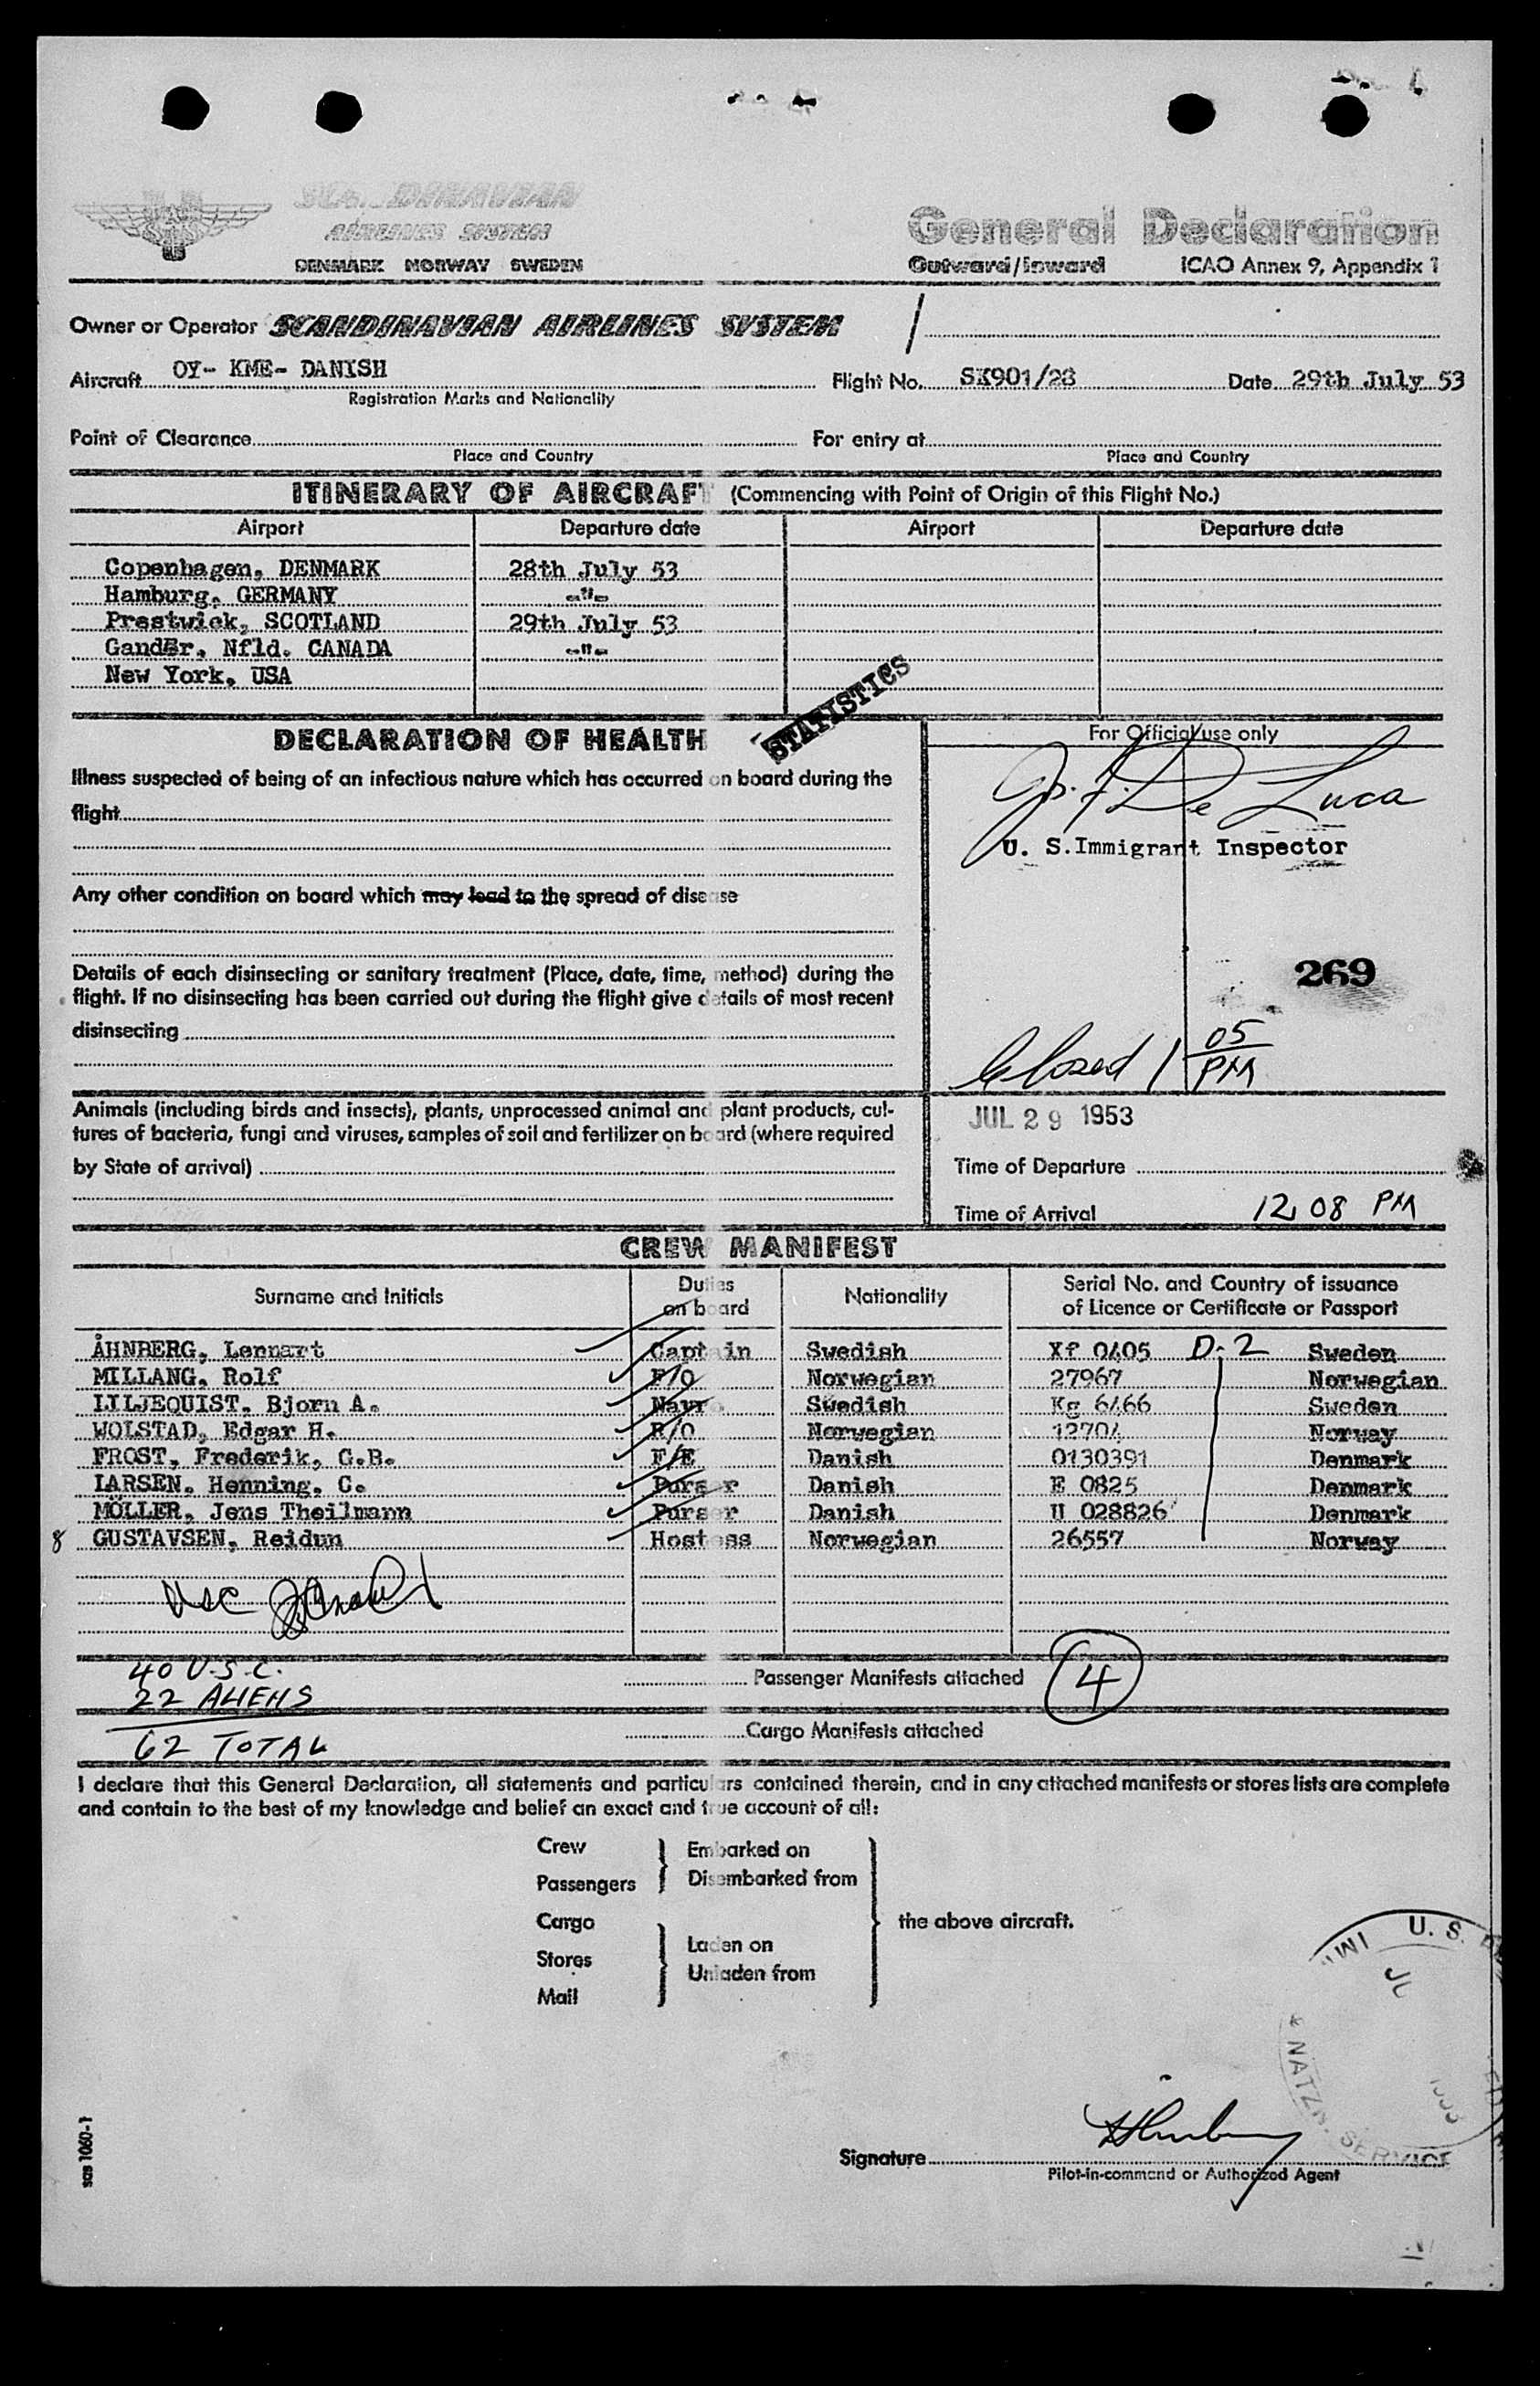 SCANDINAVIAN
AIRLINES SYSTEM
DENMARK NORWAY SWEDEN
General Declaration
Outward/Inward ICAO Annex 9, Appendix 1
Owner or Operator SCANDINAVIAN AIRLINES SYSTEM
Aircraft OY- KME- DANISH Flight No. SK901/28 Date 29th July 53
Registration Marks and Nationality
Point of Clearance For entry at
Place and Country Place and Country
ITINERARY OF AIRCRAFT (Commencing with Point of Origin of this Flight No.)
Airport Departure date Airport Departure date
Copenhagen, DENMARK 28th July 53
Hamburg, GERMANY -"-
Prestwick, SCOTLAND 29th July 53
Gander, Nfld. CANADA -"-
New York, USA
STATISTICS
DECLARATION OF HEALTH
Illness suspected of being of an infectious nature which has occurred on board during the
flight
Any other condition on board which may lead to the spread of disease
Details of each disinsecting or sanitary treatment (Place, date, time, method) during the
flight. If no disinsecting has been carried out during the flight give details of most recent
disinsecting
Animals (including birds and insects), plants, unprocessed animal and plant products, cul-
tures of bacteria, fungi and viruses, samples of soil and fertilizer on board (where required
by State of arrival)
For Official use only
De Luca
U. S. Immigrant Inspector
269
Closed 1 05 PM
JUL 29 1953
Time of Departure
Time of Arrival 12 08 PM
CREW MANIFEST
Surname and Initials Duties on board Nationality Serial No. and Country of issuance of Licence or Certificate or Passport
ÅHNBERG, Lennart Captain Swedish Xf 0405 D-2 Sweden
MILLANG, Rolf F/O Norwegian 27967 Norwegian
LILJEQUIST, Bjorn A. Navr. Swedish Kg 6466 Sweden
WOLSTAD, Edgar H. R/O Norwegian 12704 Norway
FROST, Frederik, G.B. F/E Danish 0130391 Denmark
LARSEN, Henning, C. Purser Danish E 0825 Denmark
MÖLLER, Jens Theilmann Purser Danish U 028826 Denmark
8 GUSTAVSEN, Reidun Hostess Norwegian 26557 Norway
40 U.S.C.
22 ALIENS
62 TOTAL
Passenger Manifests attached 4
Cargo Manifests attached
I declare that this General Declaration, all statements and particulars contained therein, and in any attached manifests or stores lists are complete
and contain to the best of my knowledge and belief an exact and true account of all:
Crew
Passengers
Embarked on
Disembarked from
Cargo
Stores
Mail
Laden on
Unladen from
the above aircraft.
U. S.
NATZ. SERVICE
Signature
Pilot-in-command or Authorized Agent
sas 1060-1